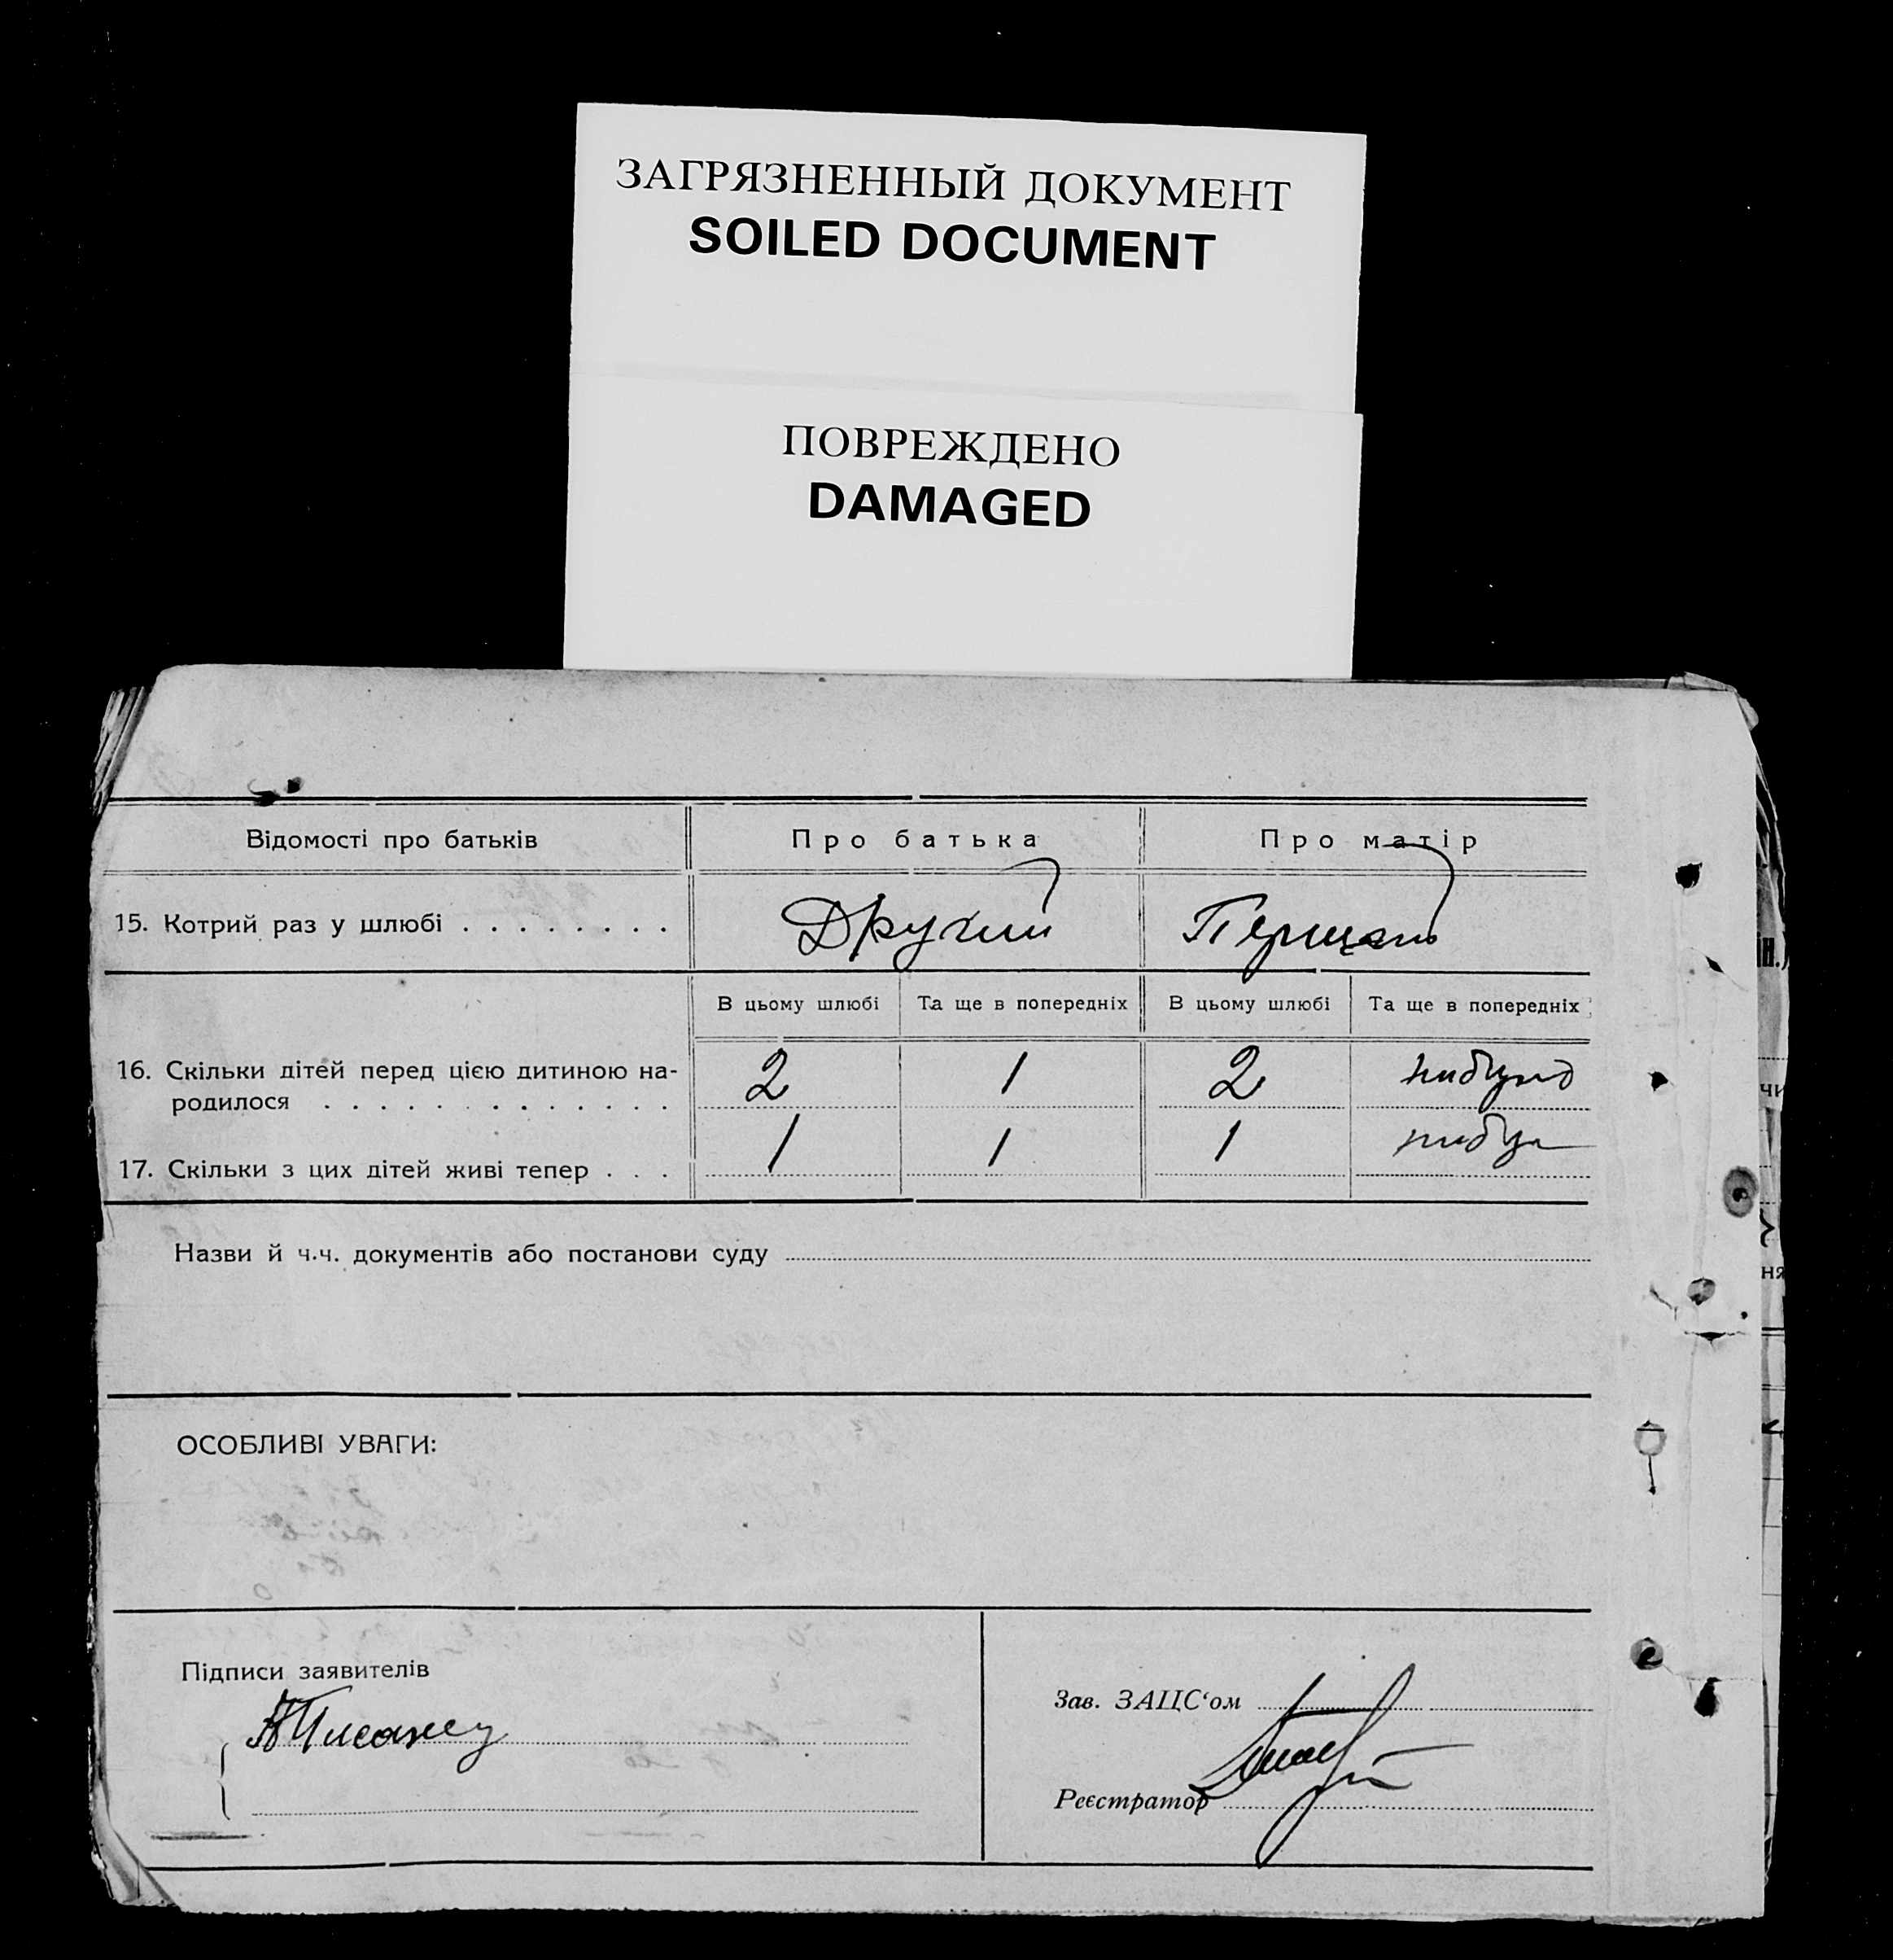 ЗАГРЯЗНЕННЫЙ ДОКУМЕНТ
SOILED DOCUMENT
ПОВРЕЖДЕНО
DAMAGED
Відомості про батьків Про батька Про матір
15. Котрий раз у шлюбі . . . . . . . . Другий Перший
В цьому шлюбі Та ще в попередніх В цьому шлюбі Та ще в попередніх
16. Скільки дітей перед цією дитиною на-
родилося . . . . . . . . . . . . . 2 1 2
17. Скільки з цих дітей живі тепер . . . 1 1 1
Назви й ч.ч. документів або постанови суду
ОСОБЛИВІ УВАГИ:
Підписи заявителів
Зав. ЗАЦС‘ом
Реєстратор